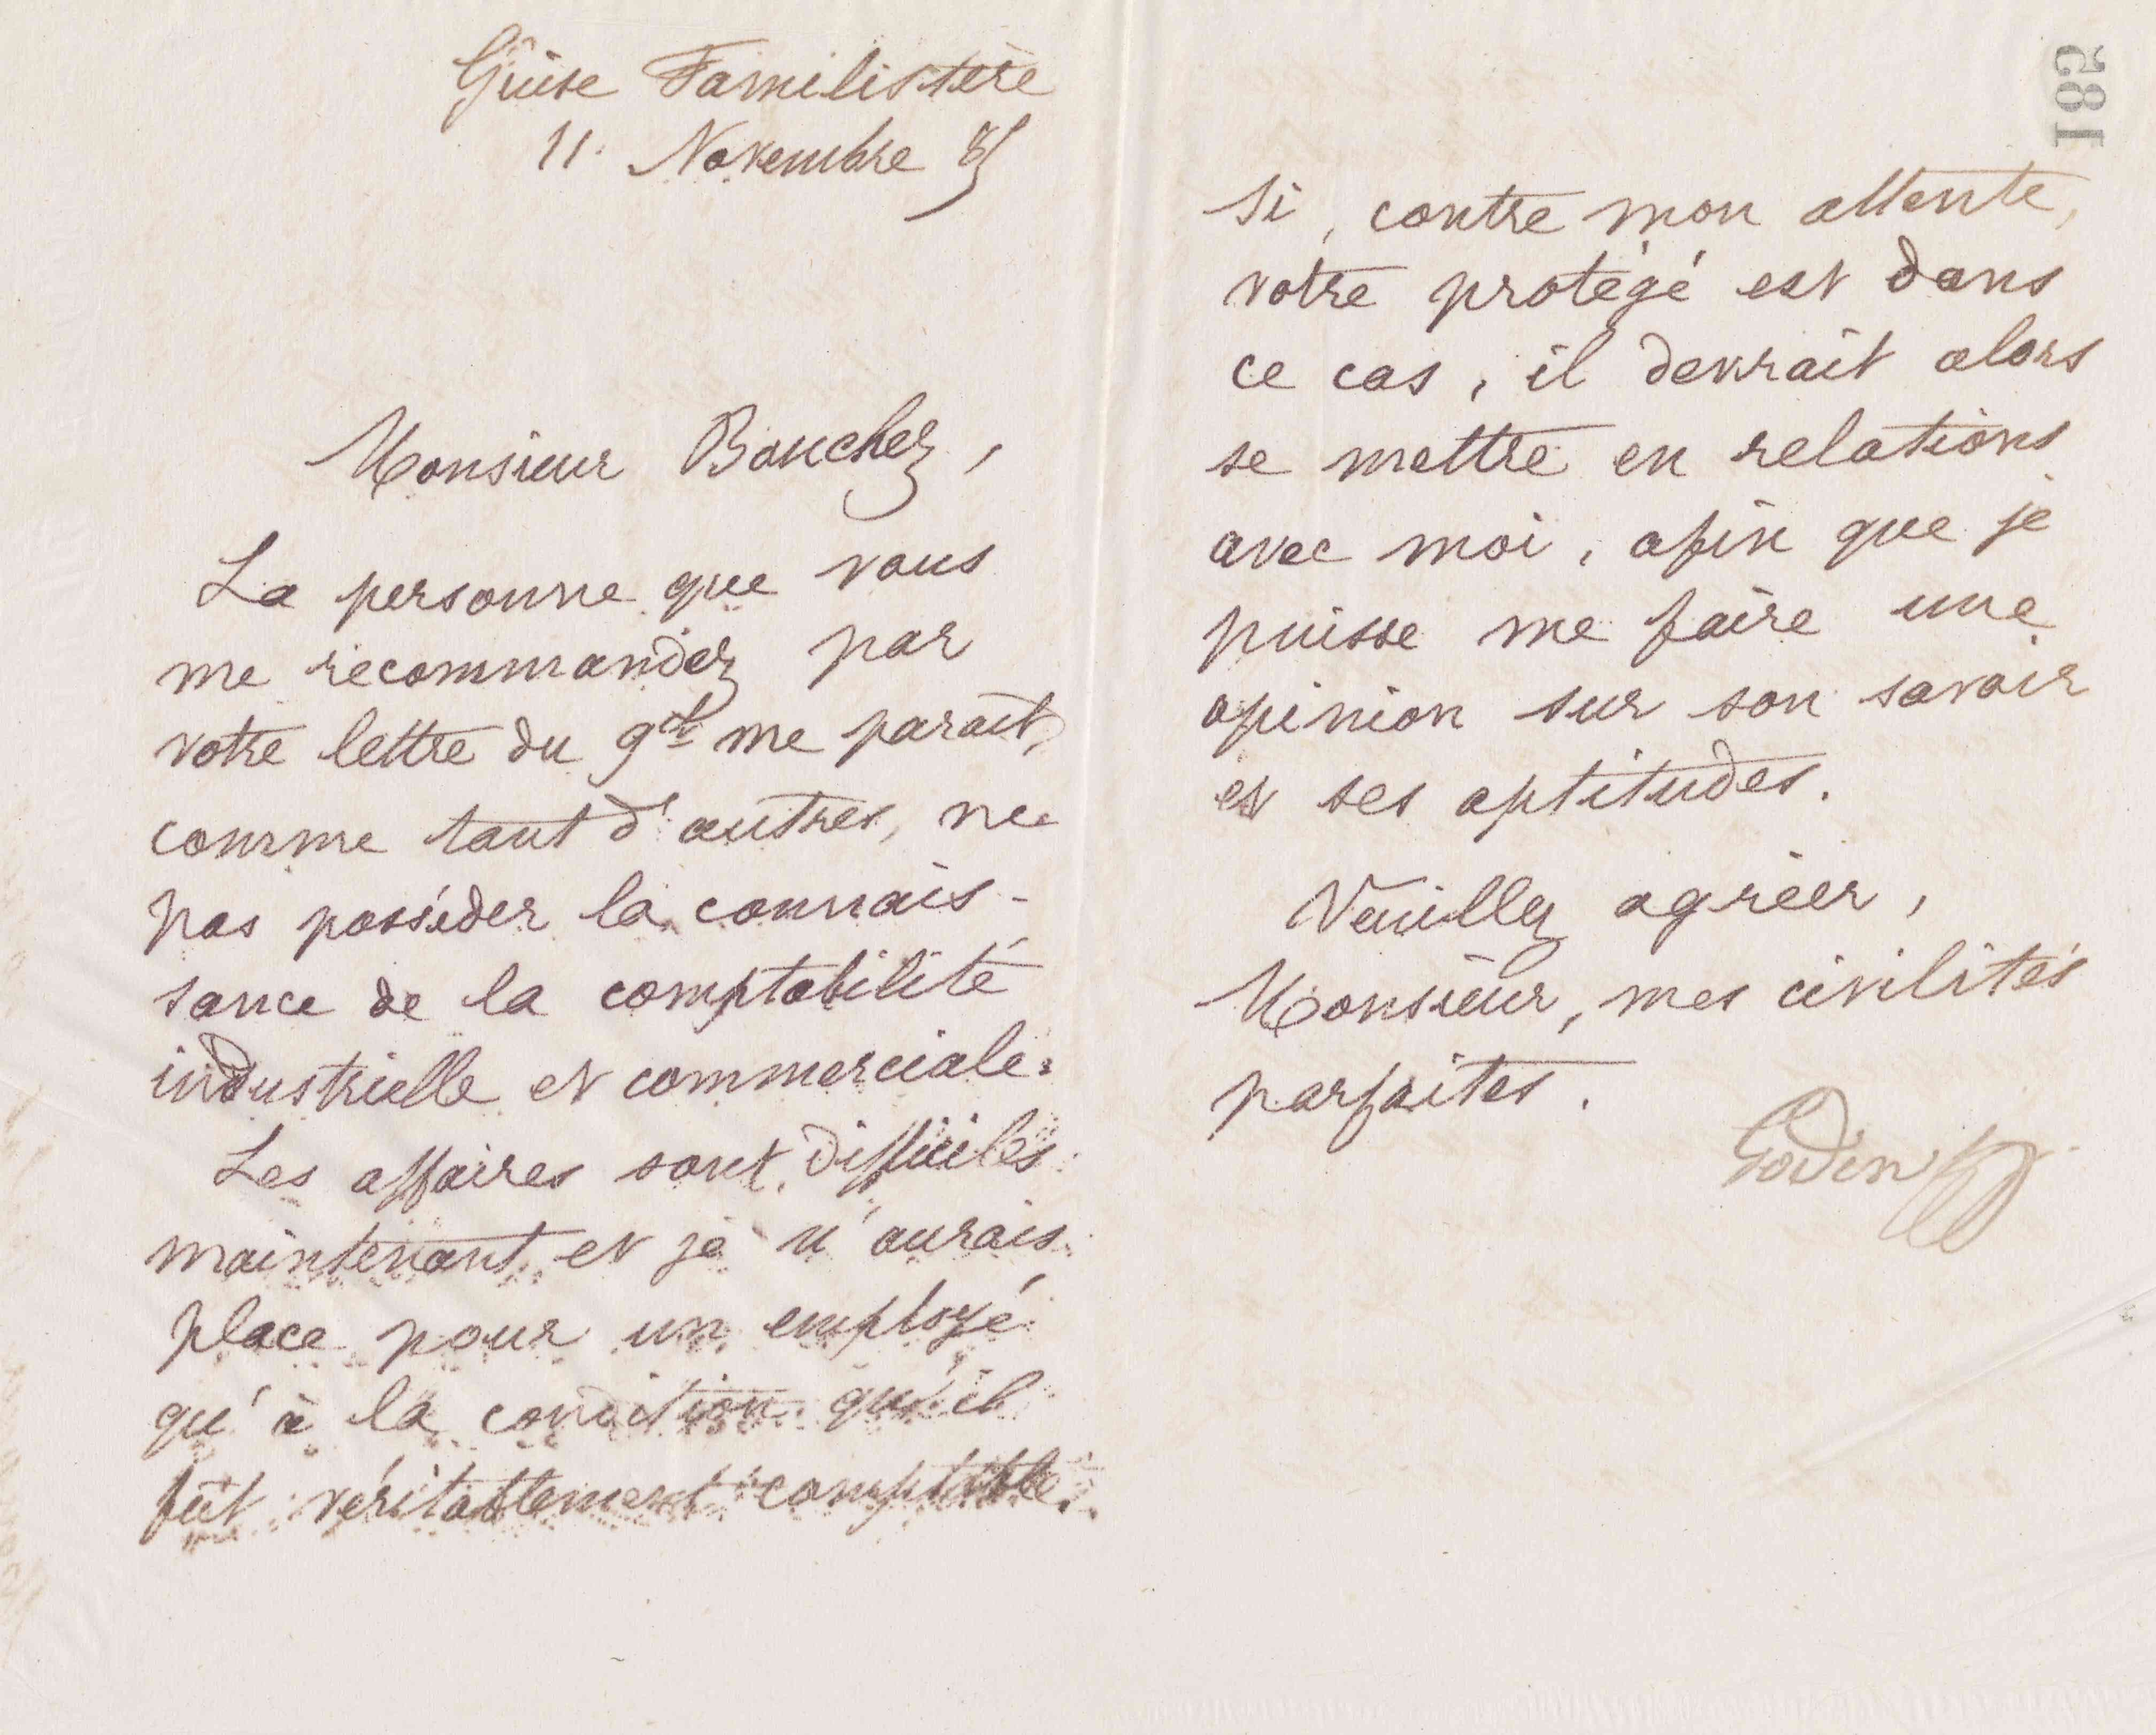 Guise Familistère
11 Novembre 85
Monsieur Bouchez,
La personne que vous
me recommandez par
votre lettre du 9 ct me parait,
comme tant d'autres, ne
pas posséder la connais-
sance de la comptabilité
industrielle et commerciale.
Les affaires sont difficiles
maintenant et je n'aurais
place pour un employé
qu'à la condition qu'il
fût véritablement comptable.
185
Si, contre mon attente,
votre protégé est dans
ce cas, il devrait alors
se mettre en relations
avec moi, afin que je
puisse me faire une
opinion sur son savoir
et ses aptitudes.
Veuillez agréer,
Monsieur, mes civilités
parfaites.
Godin